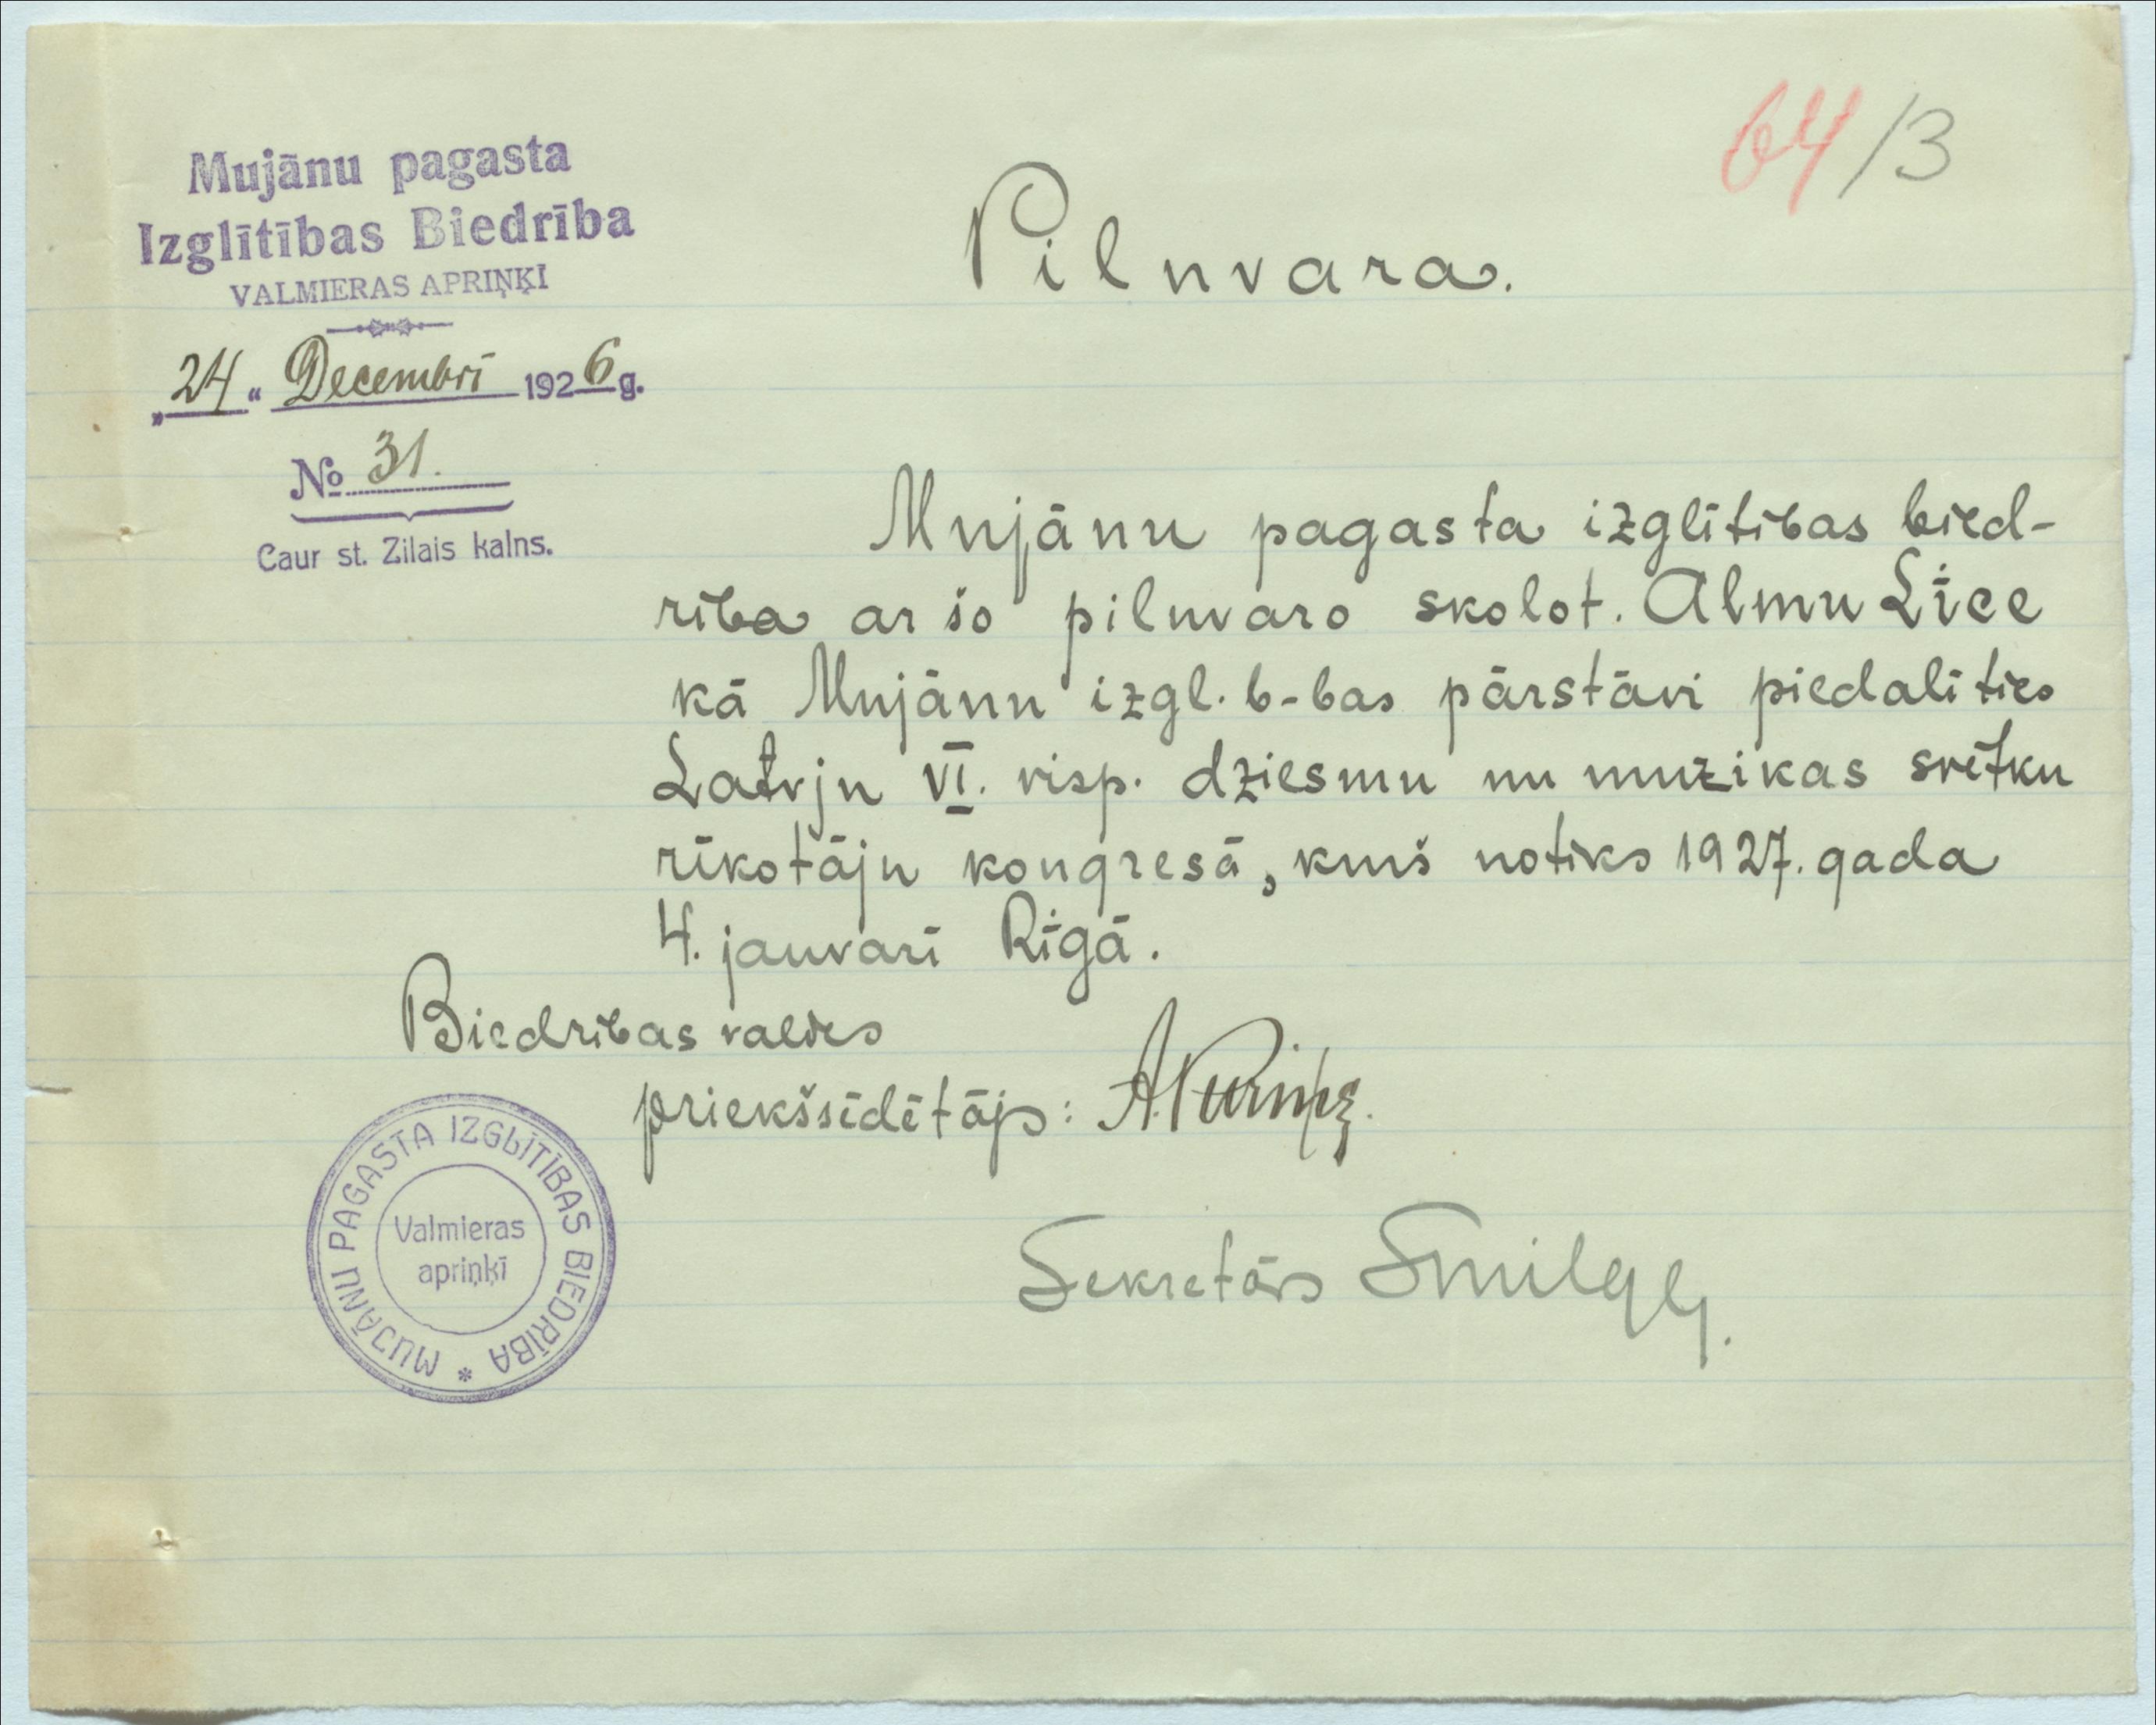 64/3
Mujānu pagasta
Izglītības Biedrība
VALMIERAS APRIŅĶĪ
„24“ Decembrī 1926 g.
№ 31.
Caur st. Zilais kalns.
Pilnvara.
Mujānu pagasta izglītības bied-
rība ar šo pilnvaro skolot. Almu Līce
kā Mujānu izgl. b-bas pārstāvi piedalīties
Latvju VI. visp. dziesmu un muzikas svētku
rīkotāju kongresā, kuŗš notiks 1927. gada
4. janvarī Rīgā.
Biedrības valdes
priekšsēdētājs:
Sekretārs Smilga
MUJĀNU PAGASTA IZGLĪTĪBAS BIEDRĪBA *
Valmieras
apriņķī